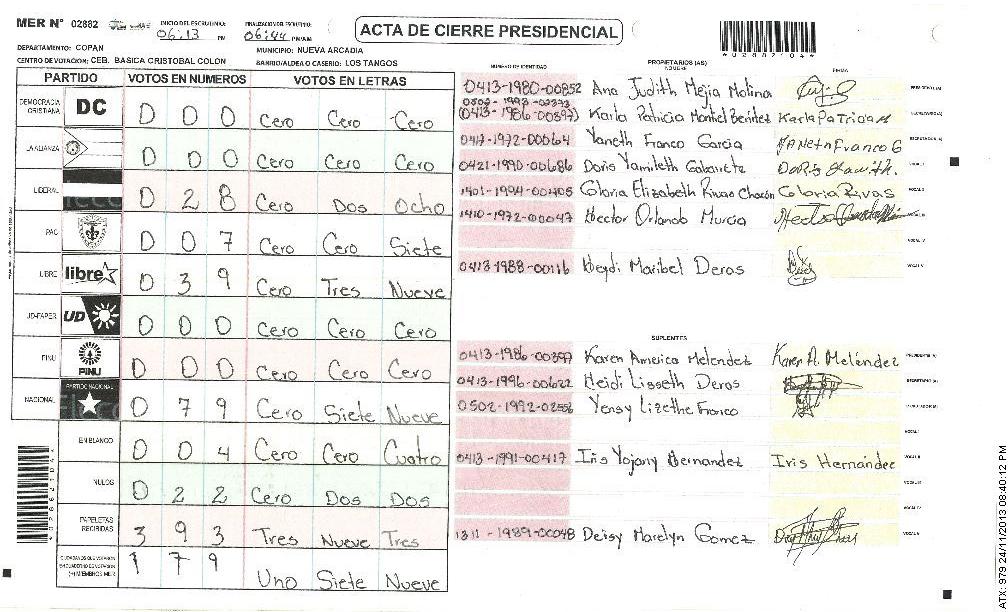 MER N° 02882
INICIO DEL ESCRUTINIO: 06:13 PM
FINALIZACION DEL ESCRUTINIO: 06:44 PM/AM
ACTA DE CIERRE PRESIDENCIAL
DEPARTAMENTO: COPAN
MUNICIPIO: NUEVA ARCADIA
CENTRO DE VOTACION: CEB. BASICA CRISTOBAL COLON
BARRIO/ALDEA O CASERIO: LOS TANGOS
PARTIDO VOTOS EN NUMEROS VOTOS EN LETRAS
DEMOCRACIA CRISTIANA DC 0 0 0 Cero Cero Cero
LA ALIANZA 0 0 0 Cero Cero Cero
LIBERAL 0 2 8 Cero Dos Ocho
PAC 0 0 7 Cero Cero Siete
LIBRE libre 0 3 9 Cero Tres Nueve
UD-FAPER UD 0 0 0 Cero Cero Cero
PINU PINU 0 0 0 Cero Cero Cero
NACIONAL PARTIDO NACIONAL 0 7 9 Cero Siete Nueve
EN BLANCO 0 0 4 Cero Cero Cuatro
NULOS 0 2 2 Cero Dos Dos
PAPELETAS RECIBIDAS 3 9 3 Tres Nueve Tres
CIUDADANOS QUE VOTARON EN CUADERNO DE VOTACION (+) MIEMBROS MER 1 7 9 Uno Siete Nueve
NUMERO DE IDENTIDAD PROPIETARIOS (AS) NOMBRE FIRMA
0413-1980-00852 Ana Judith Mejia Molina PRESIDENTE (A)
(0413-1986-00397) Karla Patricia Montiel Benitez Karla Patricia M SECRETARIO (A)
0417-1972-00064 Yaneth Franco Garcia Yaneth Franco G ESCRUTADOR (A)
0421-1990-00686 Doris Yamileth VOCAL I
1401-1994-00405 Gloria Elizabeth Rivas Chacón Gloria Rivas VOCAL II
1410-1972-00047 Hector Orlando Murcia VOCAL III
VOCAL IV
0413-1988-00116 Heydi Maribel Deras VOCAL V
SUPLENTES
0413-1986-00397 Karen America Melendez Karen A. Meléndez PRESIDENTE (A)
0413-1996-00622 Heidi Lisseth Deras SECRETARIO (A)
0502-1992-02556 Yensy Lizethe Franco ESCRUTADOR (A)
VOCAL I
0413-1991-00417 Iris Yojany Hernandez Iris Hernández VOCAL II
VOCAL III
VOCAL IV
1311-1989-00048 Deisy Marelyn Gomez VOCAL V
ATX: 979 24/11/2013 08:40:12 PM